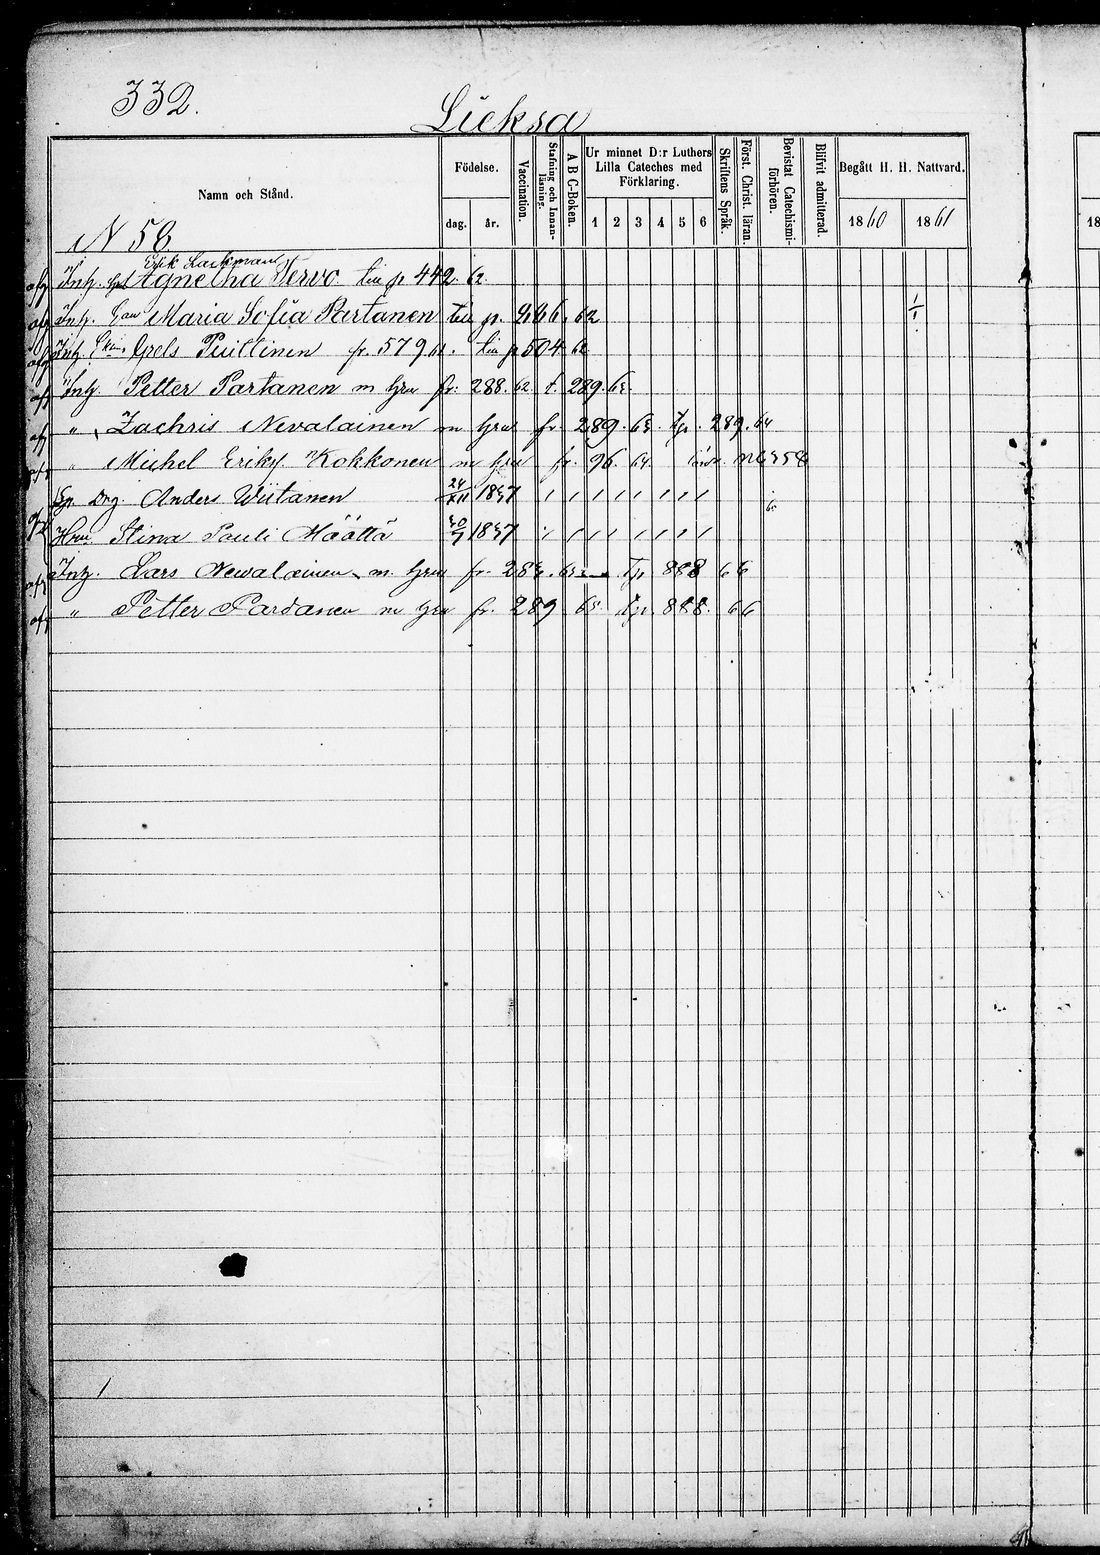 332.
Lieksa
Namn och Stånd.
Födelse.
dag. år.
Vaccination.
Stafning och Innanläsning.
A B C-Boken.
Ur minnet D:r Luthers Lilla Cateches med Förklaring.
1 2 3 4 5 6
Skriftens Språk.
Först. Christ. läran.
Bevistat Catechismiförhören.
Blifvit admitterad.
Begått H. H. Nattvard.
1860 1861
18
N 58
Erik Lackman
Inh. Agnetha Tervo. 442. 62
Inh. Maria Sofia Partanen till p. 446. 62 1/1
Inh. Grels Puittinen fr. 579 61. till p 504 62
Inh. Petter Partanen m hru fr. 288. 62 t. 289. 63
" Zachris Nevalainen m hru fr 289. 63 Tp. 289. 64
" Michel Eriks. Kokkonen m hru fr. 96. 64.
Drg Anders Wiitanen 24/XII 1837
Hru Stina Pauli Määttä 30/7 1837
Inh. Lars Newalainen m. hru fr. 66
" Petter Pardanen m hru fr. 289 65 Tp. 888. 66